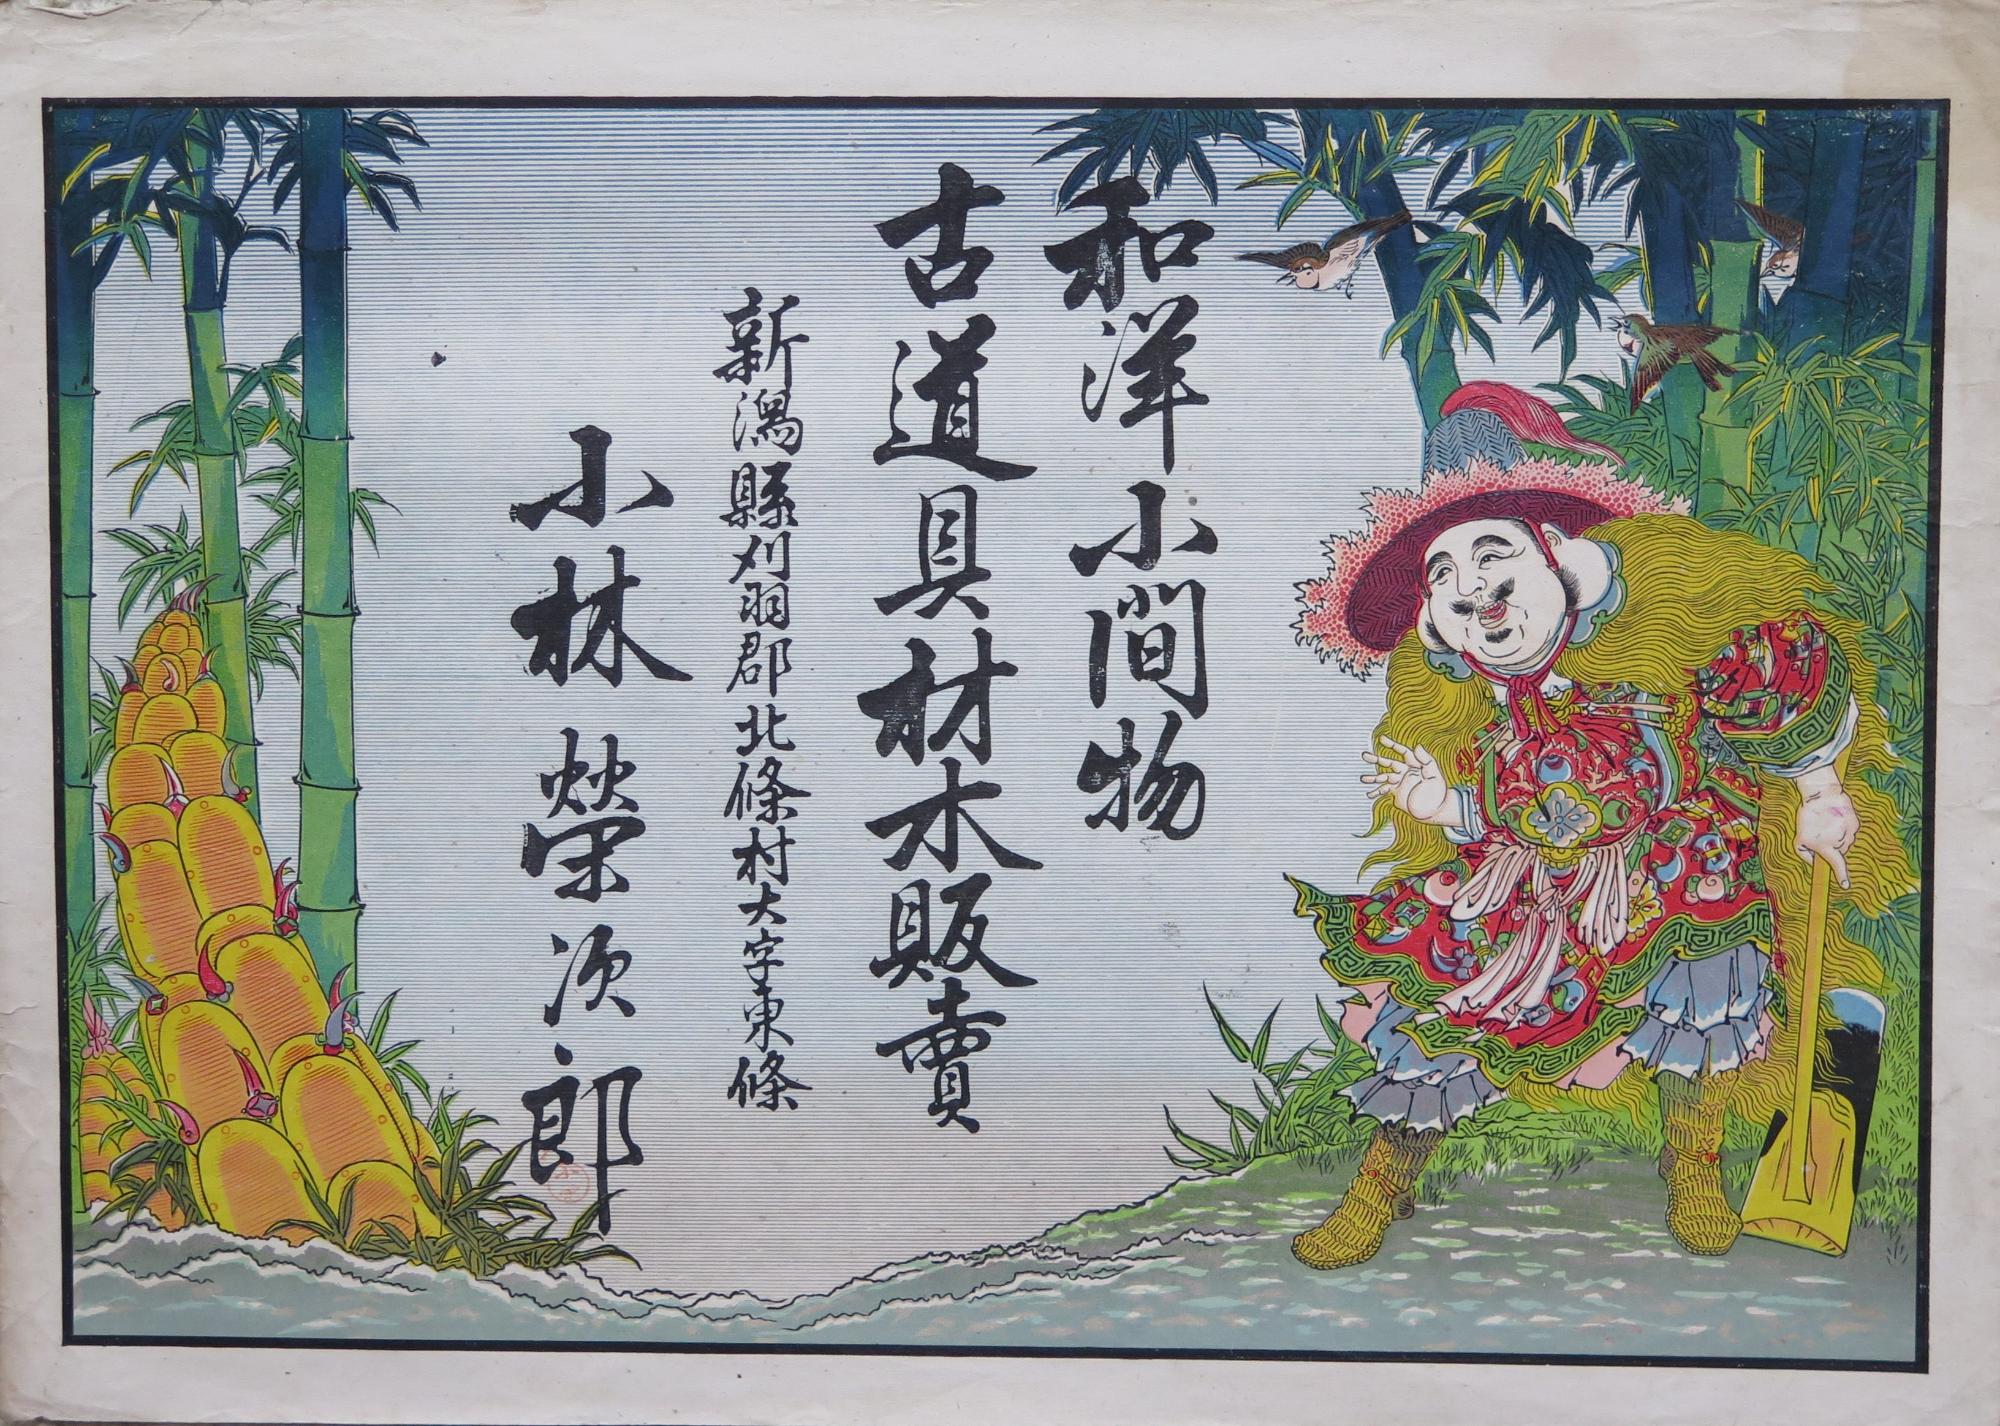 和洋小間物
古道具材木販賣
新潟縣刈羽郡北條村大字東條
小林榮次郎